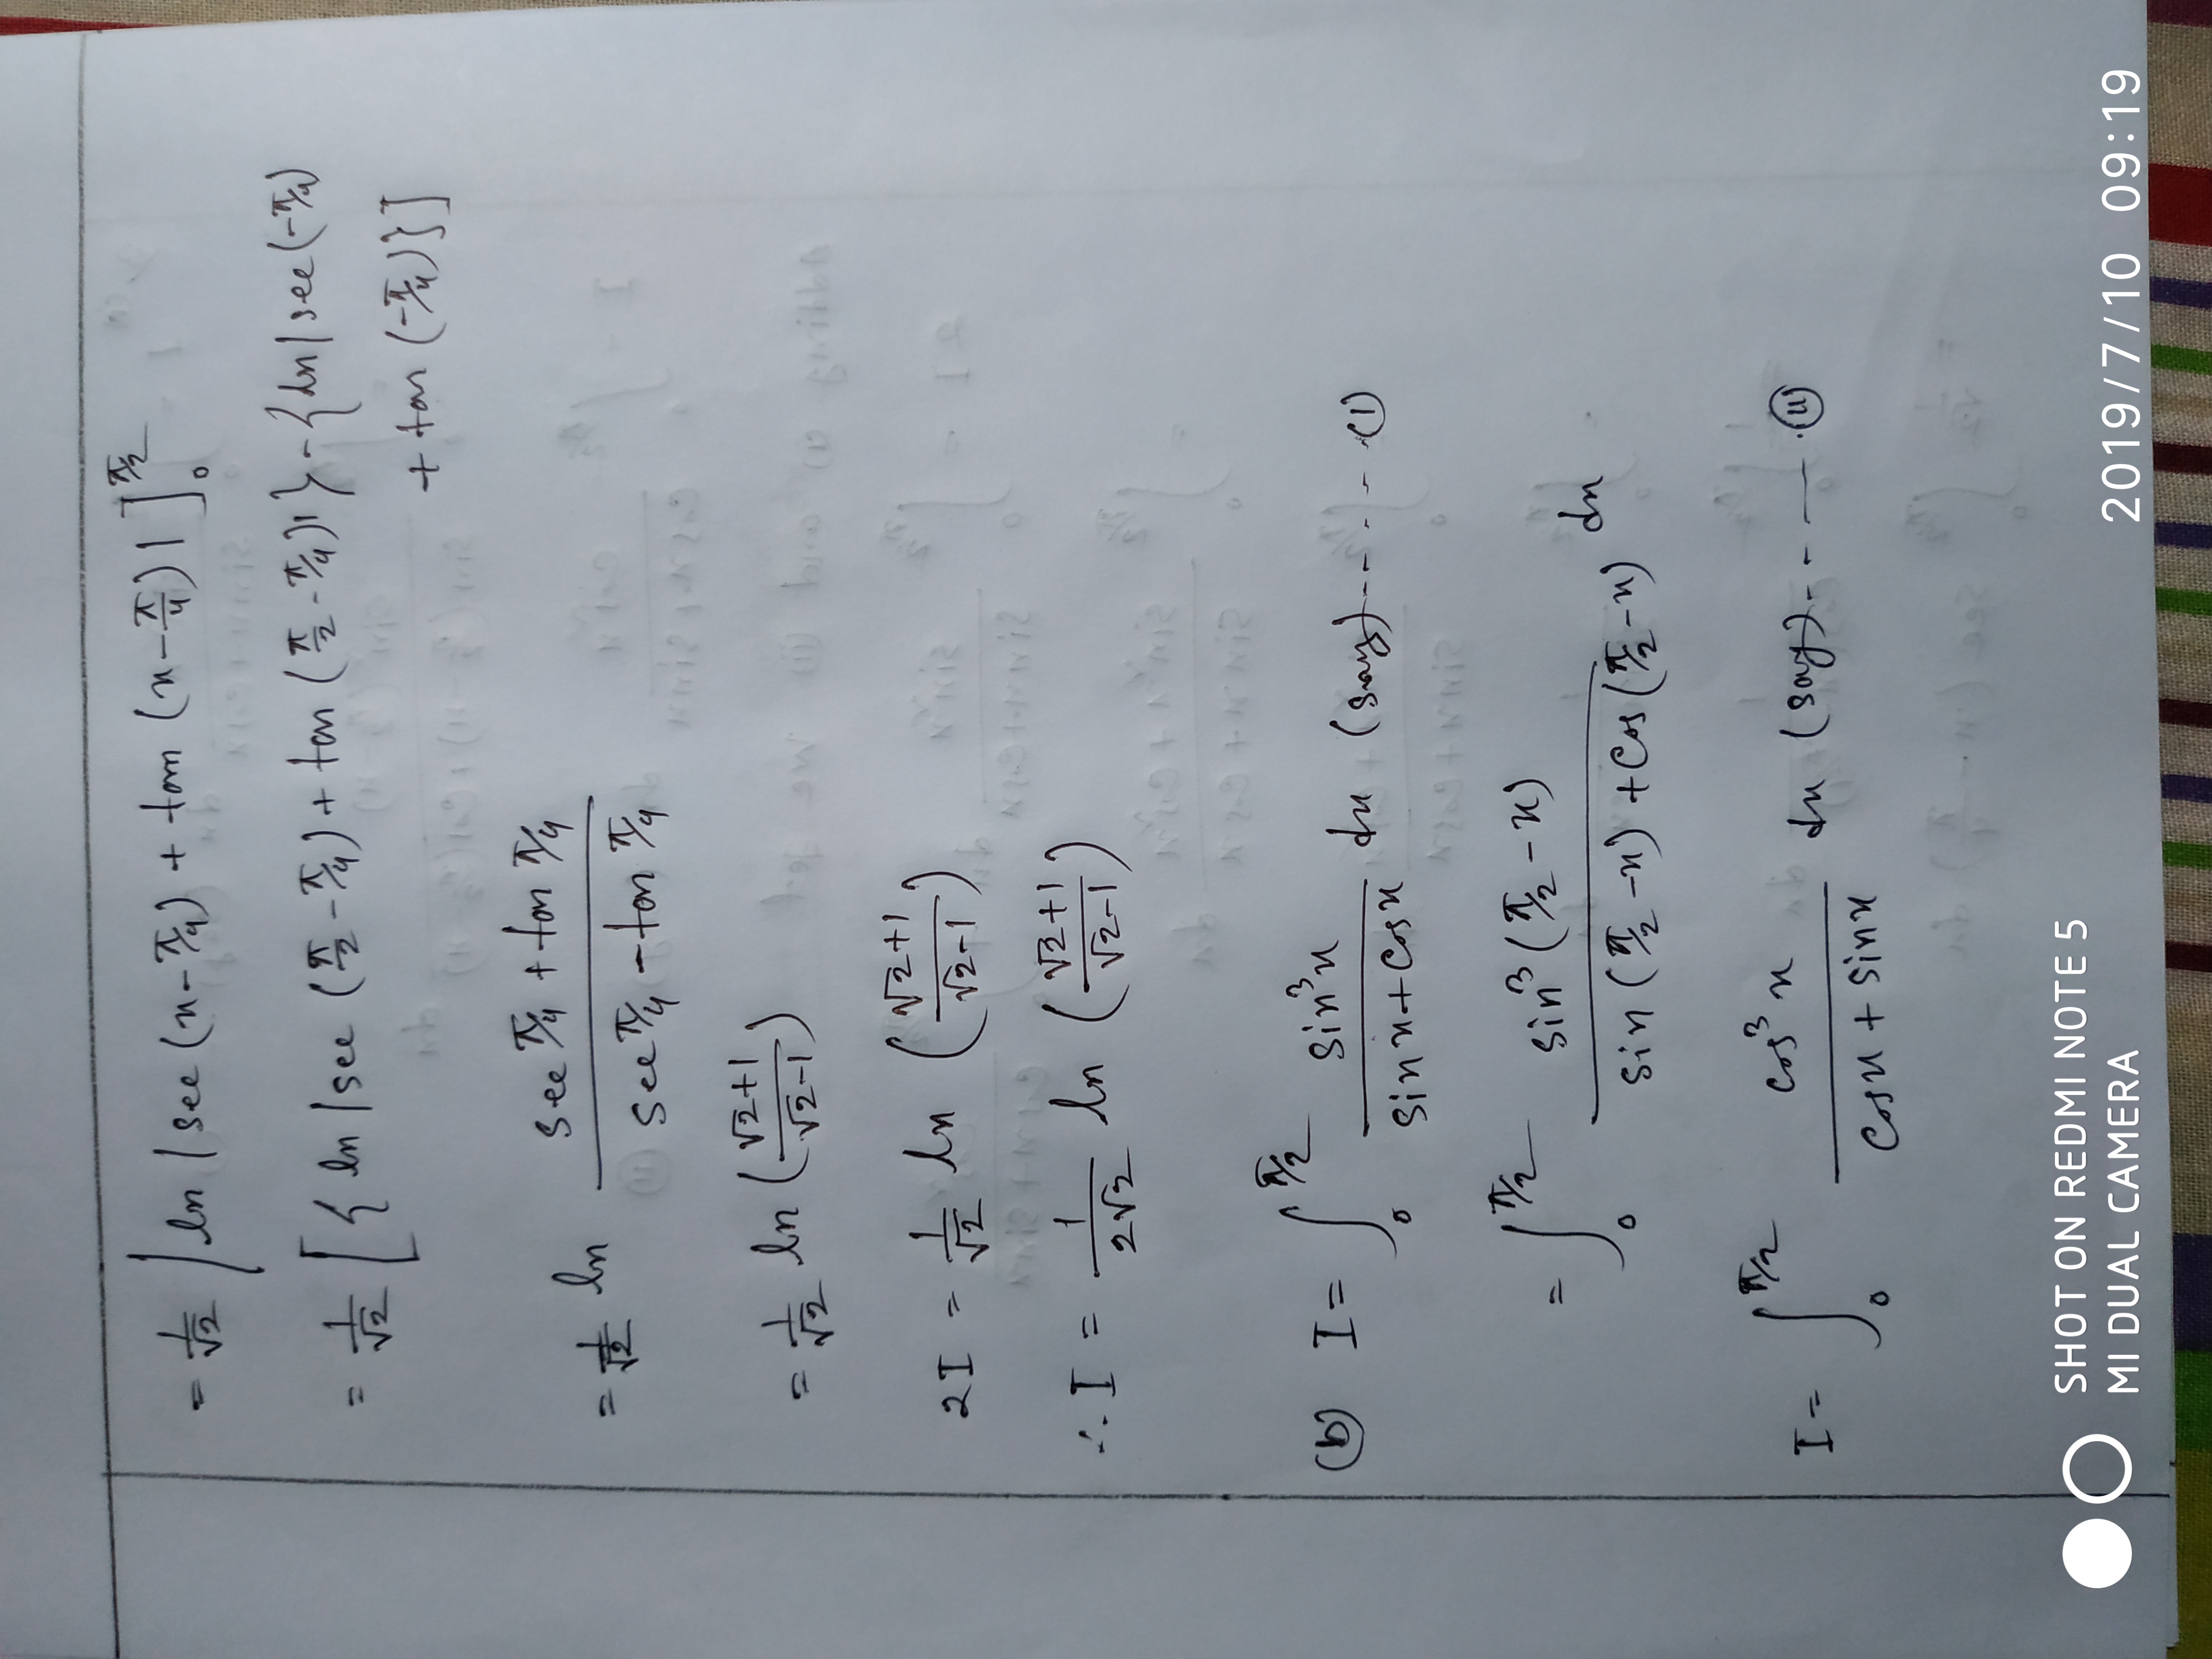 = 1/√2 [ln |sec (x-π/4) + tan (x-π/4)|]₀^π/2
= 1/√2 [{ln |sec (π/2 - π/4) + tan (π/2 - π/4)|} - {ln |sec (-π/4)
+ tan (-π/4)}]
= 1/√2 ln (sec π/4 + tan π/4)/(sec π/4 - tan π/4)
= 1/√2 ln ((√2+1)/(√2-1))
2I = 1/√2 ln ((√2+1)/(√2-1))
∴ I = 1/(2√2) ln ((√2+1)/(√2-1))
(b) I = ∫₀^π/2 sin³x/(sin x + cos x) dx (say)------(i)
= ∫₀^π/2 sin³(π/2 - x)/(sin (π/2 - x) + cos (π/2 - x)) dx
I = ∫₀^π/2 cos³x/(cos x + sin x) dx (say)------(ii)
SHOT ON REDMI NOTE 5
MI DUAL CAMERA
2019/7/10 09:19